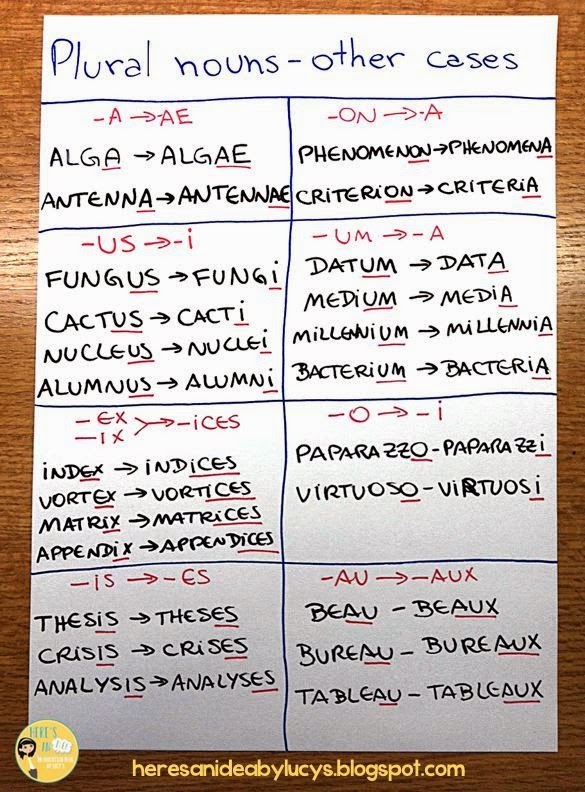 Plural nouns - other cases
-A → AE
ALGA → ALGAE
ANTENNA → ANTENNAE
-ON → -A
PHENOMENON → PHENOMENA
CRITERION → CRITERIA
-US → -i
FUNGUS → FUNGi
CACTUS → CACTi
NUCLEUS → NUCLEi
ALUMNUS → ALUMNi
-UM → -A
DATUM → DATA
MEDIUM → MEDIA
MiLLENNiUM → MiLLENNiA
BACTERIUM → BACTERIA
-EX
-IX → -iCES
iNDEX → iNDiCES
VORTEX → VORTiCES
MATRiX → MATRiCES
APPENDiX → APPENDiCES
-O → -i
PAPARAZZO - PAPARAZZi
ViRTUOSO - ViRTUOSi
-iS → -ES
THESiS → THESES
CRiSiS → CRiSES
ANALYSiS → ANALYSES
-AU → -AUX
BEAU - BEAUX
BUREAU - BUREAUX
TABLEAU - TABLEAUX
HERE'S
AN
heresanideabylucys.blogspot.com